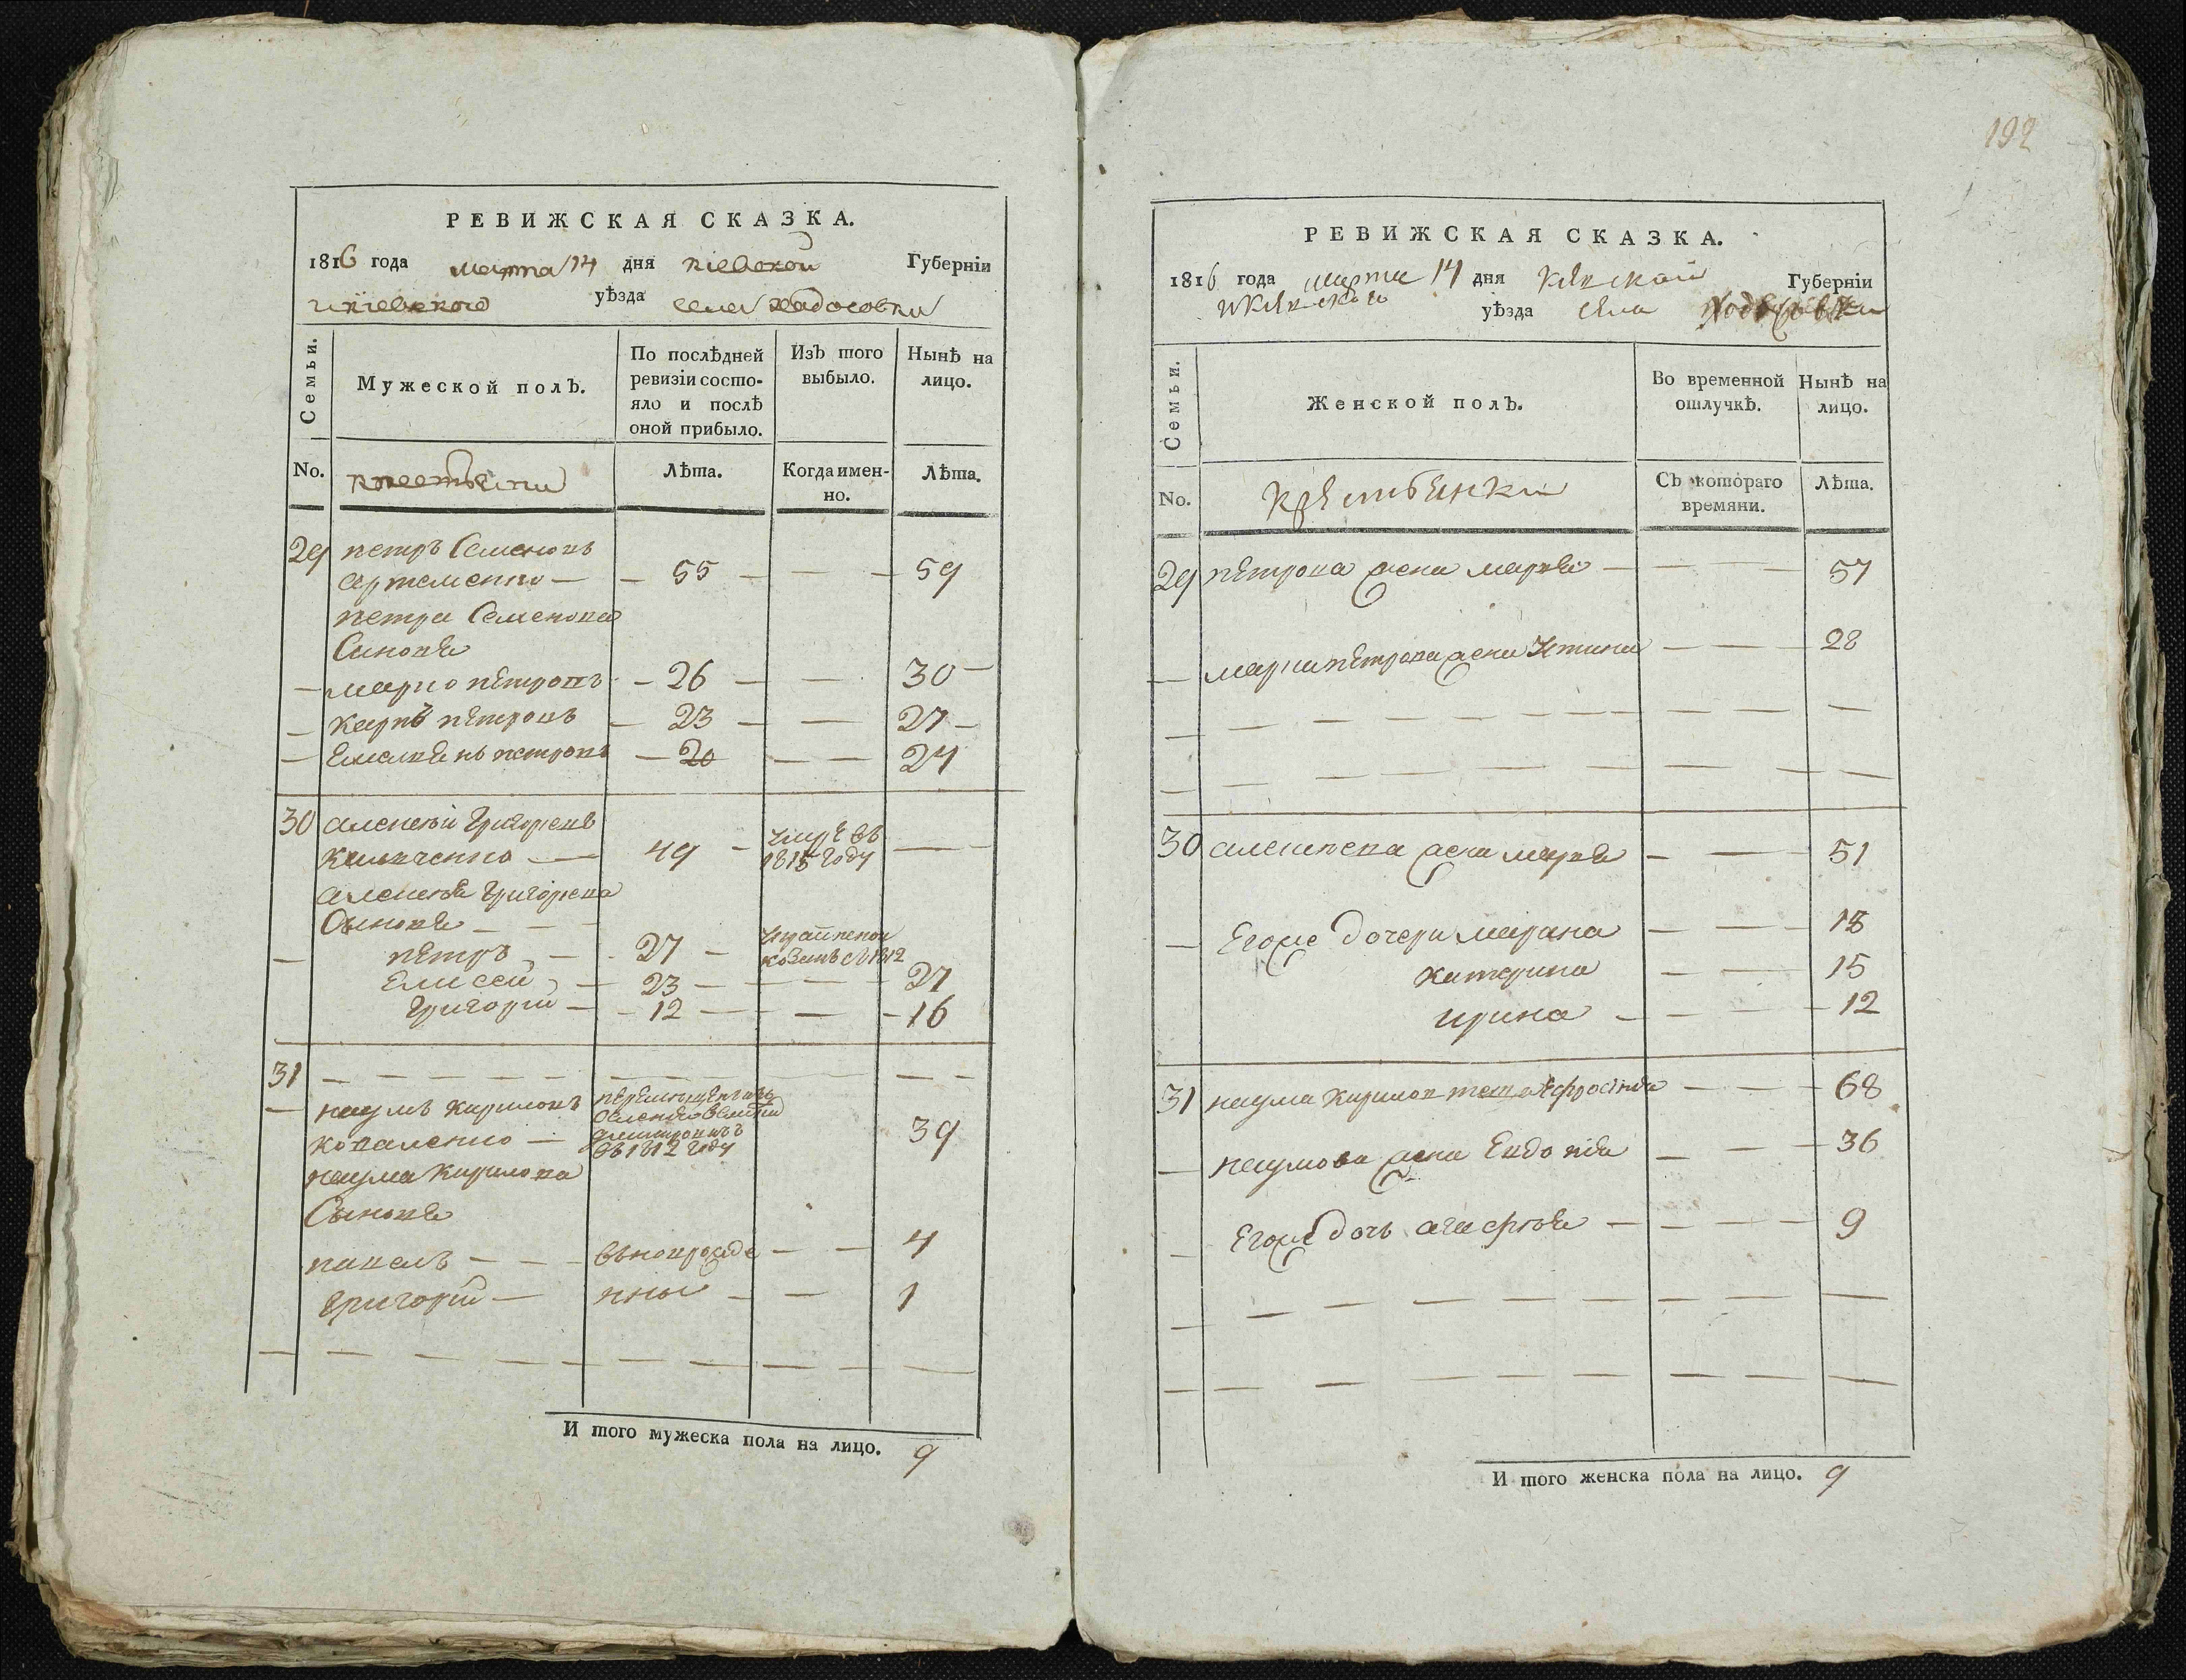 РЕВИЖСКАЯ СКАЗКА.
1816 года марта 14 дня киевской Губернїи
и киевского уѣзда села Хадосовки
Семьи.
Мужеской полЪ.
По послѣдней ревизїи состояло и послѣ оной прибыло.
ИзЪ того выбыло.
Нынѣ на лицо.
No.
крестьяни
Лѣта.
Когда именно.
Лѣта.
29 петръ Семеновъ
артеменко — — 55 — — — 59
петра Семенова
Синовѣ
— марко петровъ — 26 — — 30 —
— карпъ петровъ — 23 — — 27 —
— Емелиянъ петровъ — 20 — — 24
30 алексѣй Григориевъ
— 49 — умре въ 1815 году — —
алексѣя Григориева
Сыновѣ — —
— петръ — — 27 — козакъ 1812
Елисей — 23 — — — 27
Григорий — — 12 — — — 16
31 — — — — — — — —
— наумъ кириловъ
коваленко — въ 1812 году 39
наума кирилова
Сыновѣ
павелъ — — — вновѣрожде — — 4
Григорий — нны — — 1
— — — — — — — — —
И того мужеска пола на лицо. 9
192
РЕВИЖСКАЯ СКАЗКА.
1816 года марта 14 дня Киевской Губернїи
и Киевского уѣзда села Ходосовки
Семьи.
Женской полЪ.
Во временной отлучкѣ.
Нынѣ на лицо.
No.
Крестьянки
СЪ котораго времяни.
Лѣта.
29 петрова жена марѣя — — — 57
— марка петрова жена Устина — — — 28
— — — — — — — — — — —
— — — — — — — — — —
30 алексеева жена марѣя — — 51
— Егоже дочери марана — — — 18
катерина — — 15
ирина — — — 12
31 наума кирилов теща Ефросиния — — — 68
— наумова жена Евдокия — — — 36
— Егоже дочь агафия — — — — 9
— — — — — — — — — —
— — — — — — — — — —
И того женска пола на лицо. 9